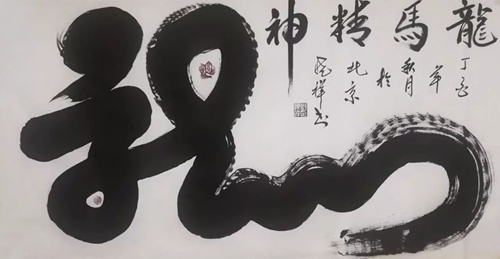 龍馬精神
丁酉
年
秋月
於
北京
祥书
龙